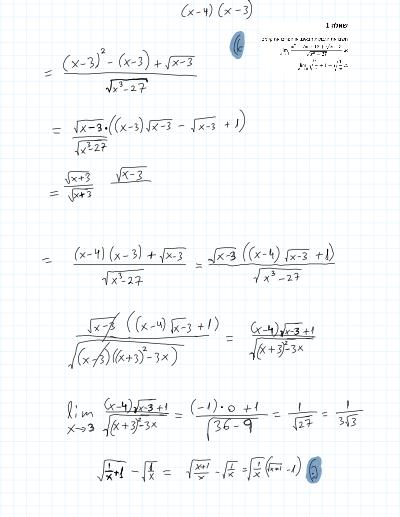 (x-4) (x-3)
שאלה 1
= ((x-3)² - (x-3) + √(x-3)) / √(x³-27)
= √(x-3)·((x-3)√(x-3) - √(x-3) + 1) / √(x³-27)
= √(x+3) / √(x+3) √(x-3)
= ((x-4)(x-3) + √(x-3)) / √(x³-27) = √(x-3) ((x-4)√(x-3) + 1) / √(x³-27)
√(x-3) ((x-4)√(x-3) + 1) / √((x-3)((x+3)²-3x)) = ((x-4)√(x-3)+1) / √((x+3)²-3x)
lim x→3 ((x-4)√(x-3)+1) / √((x+3)²-3x) = ((-1)·0+1) / √(36-9) = 1/√27 = 1/(3√3)
√(1/x+1) - √(1/x) = √((x+1)/x) - √(1/x) = √(1/x) (√(x+1) - 1)